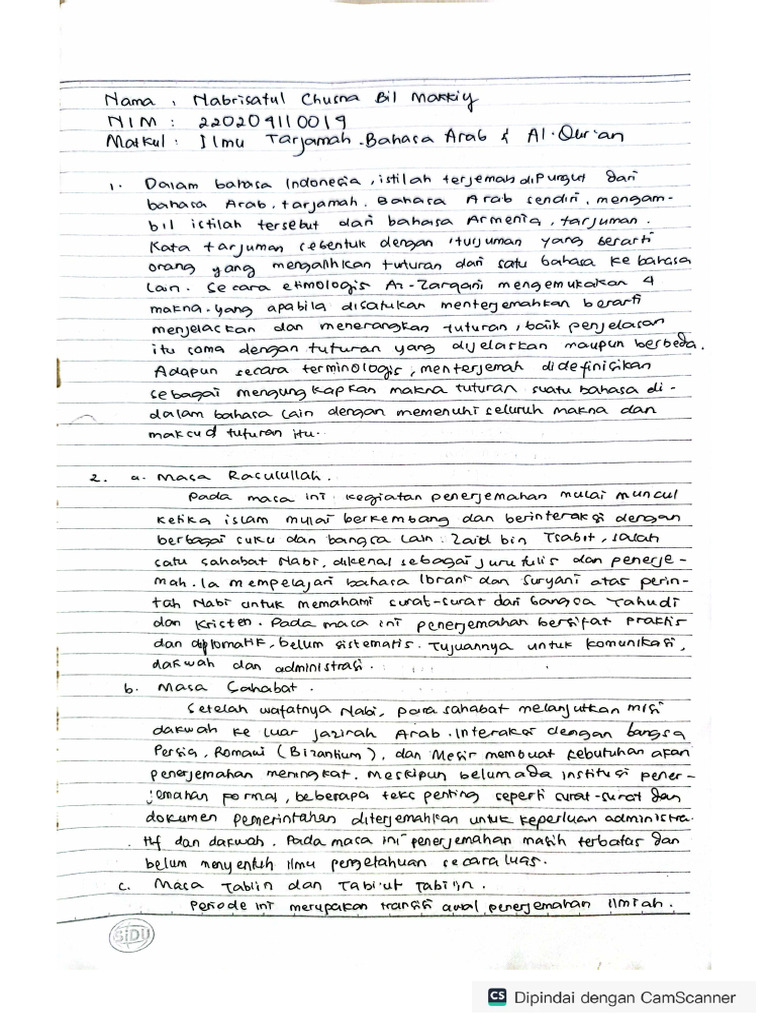 Nama : Nabrisatul Chusna Bil Makkiy
NIM : 220204110019
Matkul : Ilmu Tarjamah Bahasa Arab & Al-Qur'an
1. Dalam bahasa Indonesia, istilah terjemah dipungut dari
bahasa Arab, tarjamah. Bahasa Arab sendiri, mengam-
bil istilah tersebut dari bahasa Armenia, tarjuman.
Kata tarjuman sebentuk dengan 'turjuman yang berarti
orang yang mengalihkan tuturan dari satu bahasa ke bahasa
lain. Secara etimologis Az-Zarqani mengemukakan 4
makna. yang apabila disatukan menterjemahkan berarti
menjelaskan dan menerangkan tuturan, baik penjelasan
itu sama dengan tuturan yang dijelaskan maupun berbeda.
Adapun secara terminologis, menterjemah didefinisikan
sebagai mengungkapkan makna tuturan suatu bahasa di-
dalam bahasa lain dengan memenuhi seluruh makna dan
maksud tuturan itu.
2. a. Masa Rasulullah.
Pada masa ini kegiatan penerjemahan mulai muncul
ketika islam mulai berkembang dan berinteraksi dengan
berbagai suku dan bangsa lain. Zaid bin Tsabit, salah
satu sahabat Nabi, dikenal sebagai juru tulis dan penerje-
mah. Ia mempelajari bahasa Ibrani dan Suryani atas perin-
tah Nabi untuk memahami surat-surat dari bangsa Yahudi
dan Kristen. Pada masa ini penerjemahan bersifat praktis
dan diplomatik, belum sistematis. Tujuannya untuk komunikasi,
dakwah dan administrasi.
b. Masa Sahabat.
Setelah wafatnya Nabi, para sahabat melanjutkan misi
dakwah ke luar jazirah Arab. Interaksi dengan bangsa
Persia, Romawi (Bizantium), dan Mesir membuat kebutuhan akan
penerjemahan meningkat. Meskipun belum ada institusi pener-
jemahan formal, beberapa teks penting seperti surat-surat dan
dokumen pemerintahan diterjemahkan untuk keperluan administra
tif dan dakwah. Pada masa ini penerjemahan masih terbatas dan
belum menyentuh ilmu pengetahuan secara luas.
c. Masa Tabiin dan Tabi'ut Tabi'in.
Periode ini merupakan transisi awal penerjemahan Ilmiah.
SIDU
CS Dipindai dengan CamScanner